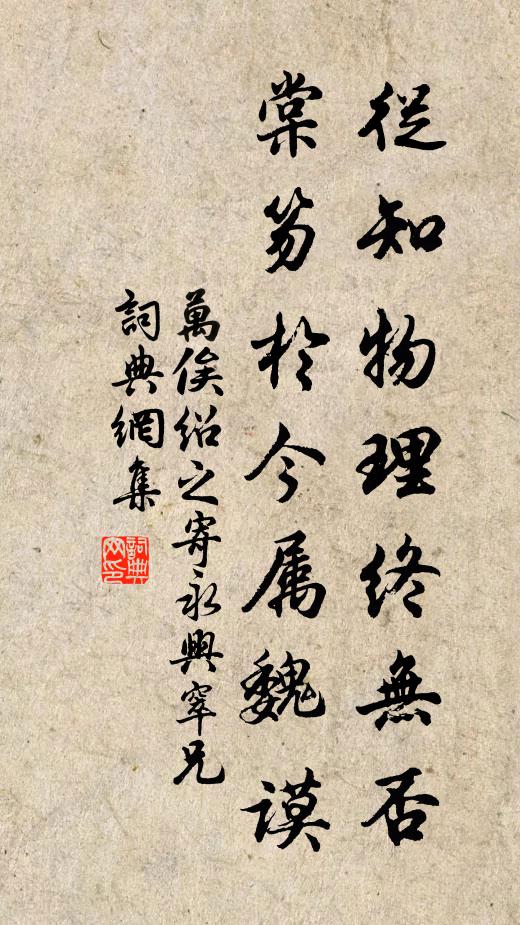 從知物理終無否
棠笏於今属魏謨
萬俟紹之寄永興宰兄
詞典網集
詞典
网印